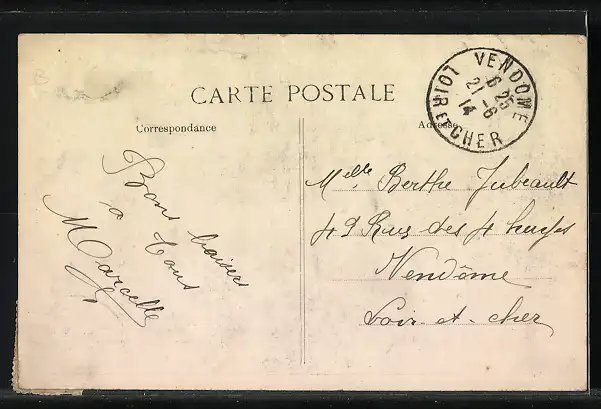 CARTE POSTALE
Correspondance
Adresse
VENDOME
6 25
21 -8
14
LOIR ET CHER
Bons baisers
à tous
Marcelle
Melle Berthe Jubeault
49 Rue des 4 
Vendôme
Loir-et-cher